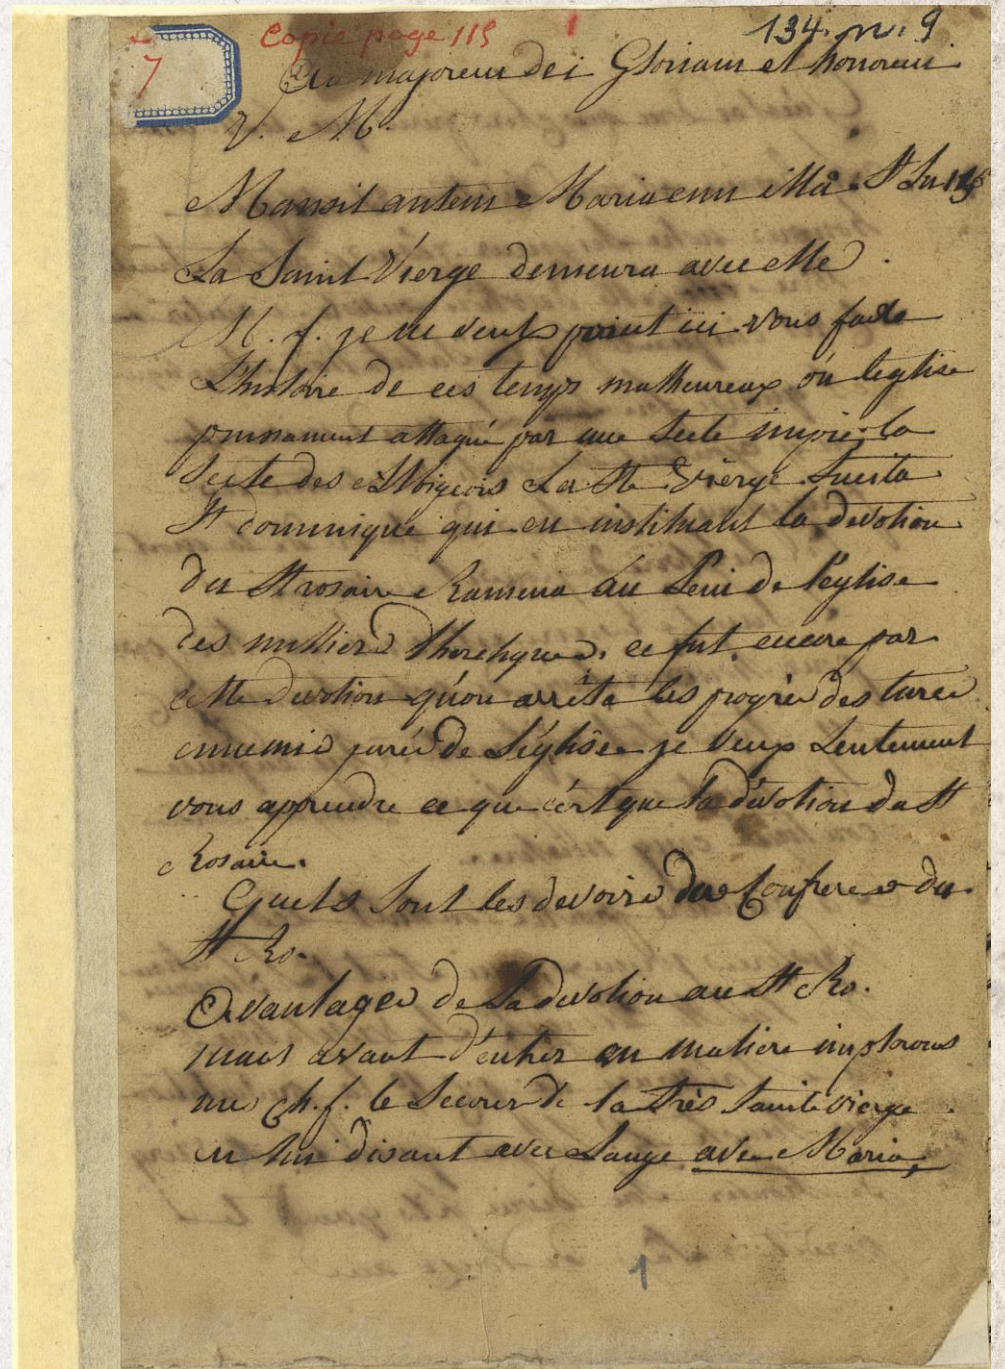 7
Copie page 115
1
134. n. 9
Ad majorem dei Gloriam et honorem
V. M.
Mansit autem Maria cum illa. St Lu 1
La Saint Viérge demeura avec elle.
M. f. je ne veux point ici vous faire
L'histoire de ces temps malheureux où leglise
puissament attaqué par une Secte impie, la
Secte des Albigeois La Ste Viérge Sucita
St dominique qui en instituant la devotion
du St rosaire Ramena au Sein de l'eglise
des millier d'heretiques. ce fut encore par
cette devotion qu'on arrêta les progrès des turcs
ennemis jurés de L'église je veux Seulement
vous apprendre ce que c'est que la dévotion du St
Rosaire.
Quels Sont les devoirs des Confreres du
St Ro.
Avantages de La devotion au St Ro.
mais avant d'entrer en matiere implorons
mes ch. f. le Secours de la très Sainte vierge
en lui disant avec Lange ave Maria,
1